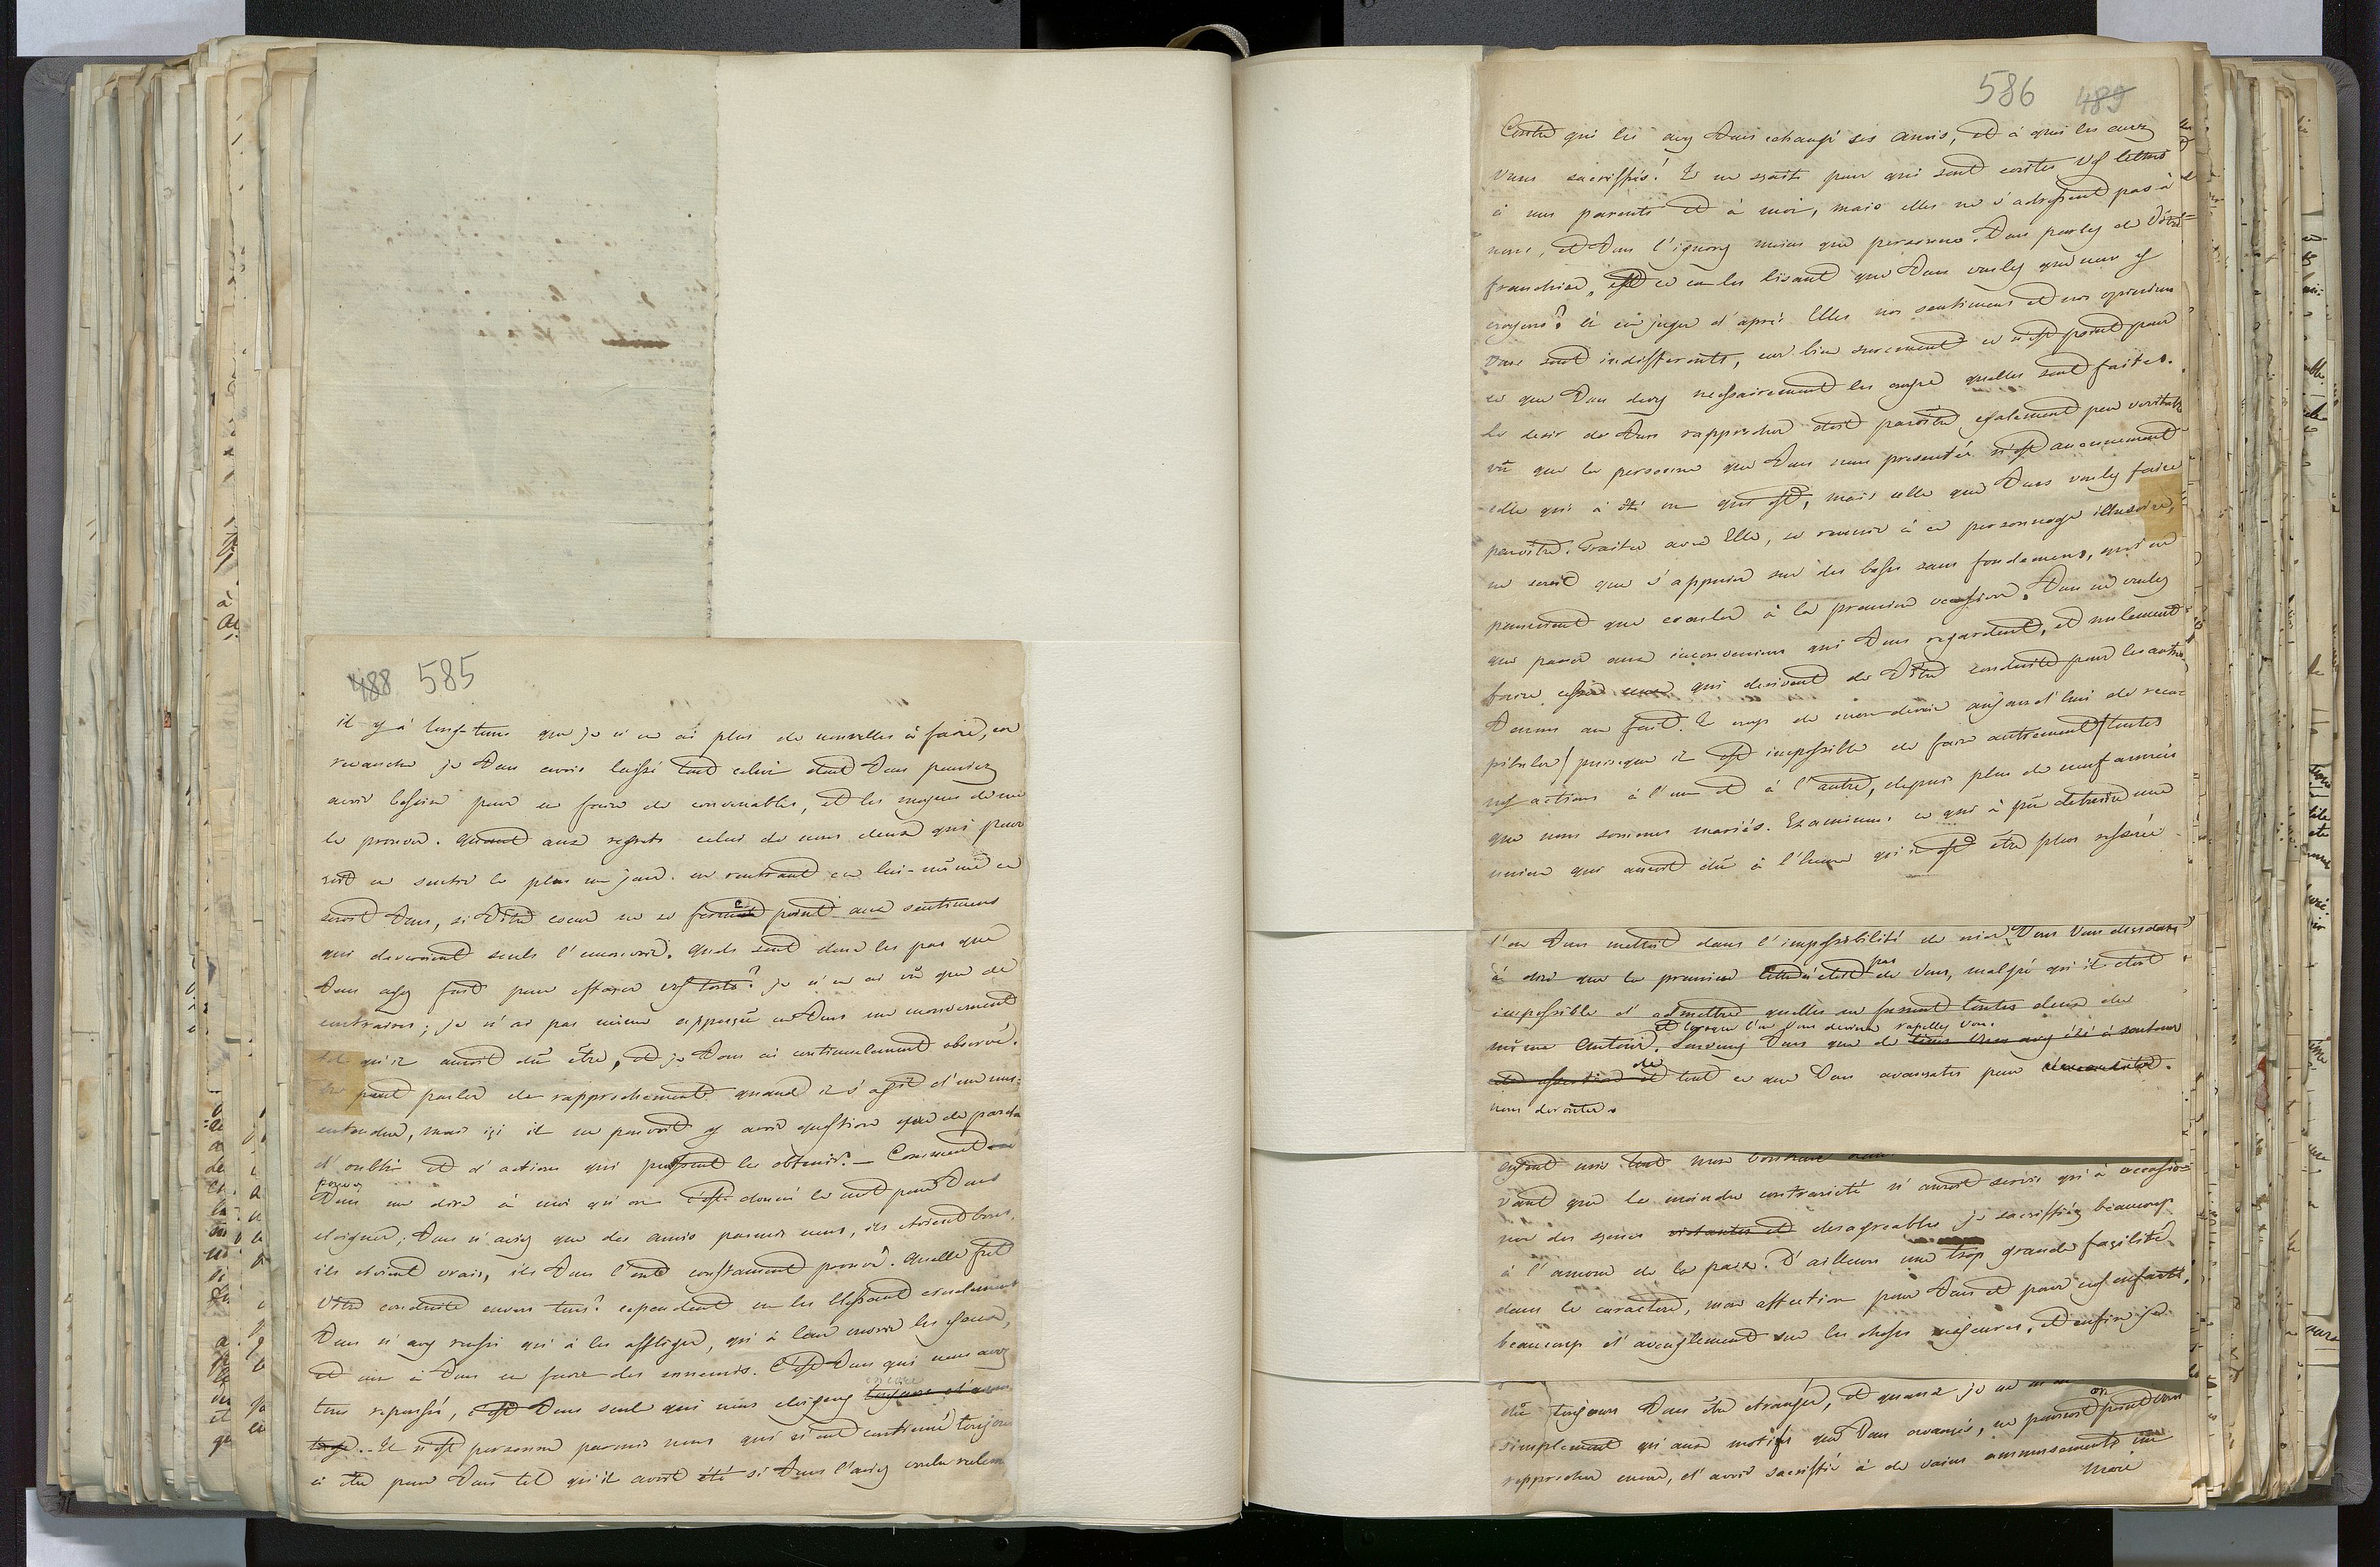 488 585
il y à longtems que je n'en ai plus de nouvelles à faire, en
revanche je Vous avois laissé tout celui dont Vous pouviez
avoir besoin pour en faire de convenables, et les moyens de me
le prouver. Quant aux regrets celui de nous deux qui pour
roit en sentir le plus un jour en rentrant en lui-même ce
seroit Vous, si Vôtre coeur ne se fermoit point aux sentimens
qui devroient seuls l'émouvoir. Quels sont donc les pas que
Vous ayez fait pour effacer vos torts? je n'en ai vû que de
contraires; je n'ai pas même apperçû en Vous un mouvement
tel qu'il auroit dû être, et je Vous ai continuelement observé.
peut parler de rapprochement quand il s'agit d'un mes-
entendu, mais içi il ne pouvoit y avoir question que de pardon
d'oubli et d'actions qui pussent les obtenir. — Comment
pouvez
Vous me dire à moi qu'on s'est donné le mot pour Vous
eloigner; Vous n'aviez que des amis parmis nous, ils étoient bons,
ils etoient vrais, ils Vous l'ont constament prouvé. Quelle fut
Vôtre conduite envers tous? cependant en les blessant cruelement
Vous n'avez reussi qu'à les affliger, qu'à leur ouvrir les yeux,
et non à Vous en faire des ennemis. C'est Vous qui nous avez
tous repoussés, c'est Vous seul qui nous eloignez
encore
Il n'est personne parmis nous qui n'ait continué toujours
à être pour Vous tel qu'il avoit été si Vous l'aviez voulu
586 489
Contre qui les avez Vous echangé ses amis, et à qui les avez
Vous sacrifiés! Je ne sçais pour qui sont ecrites Vos lettres
à mes parents et à moi, mais elles ne s'adressent pas à
nous, et Vous l'ignorez moins que personne. Vous parlez de Vôtre
franchise, est ce en les lisant que Vous voulez que nous y
croyons? à en juger d'après Elles nos sentimens et nos opinions
Vous sont indifferents, car bien surement ce n'est point pour
ce que Vous devez necessairement les croire quelles sont faites.
Le desir de Vous rapprocher doit paroître egalement peu veritable
vû que la personne que Vous nous presentés n'est aucunement
celle qui à été ou qui est, mais celle que Vous voulez faire
paroître. Traiter avec Elle, se reunir à ce personnage illusoire,
ne seroit que s'appuier sur des bases sans fondemens, qui ne
pourroient que crouler à la premiere occasion. Vous ne voulez
que parer aux inconveniens qui Vous regardent, et nulement
faire cesser ceux qui derivent de Vôtre conduite pour les autres
Venons au fait. Je crois de mon devoir aujourd'hui de reca-
pituler (puisque il est impossible de faire autrement) toutes
nos actions à l'un et à l'autre, depuis plus de neuf années
que nous sommes mariés. Examinons ce qui à pû detruire une
union qui auroit dû à l'heure qu'il est être plus resserée
l'on Vous mettoit dans l'impossibilité de nier. Vous Vous
à dire que la premiere lettre n'etoit pas de Vous, malgré qu'il etoit
impossible d'admettre quelles ne fussent toutes deux du
même Auteur.
et lorsque l'on Vous devina rapellez Vous
Souvenez Vous que de
de tout ce que Vous avançates pour
nous derouter.
voient que la moindre contrarieté n'auroit servie qu'à occasio-
ner des scenes desagreables je sacrifiéz beaucoup
à l'amour de la paix. D'ailleurs une trop grande façilité
dans le caractere, mon affection pour Vous et pour nos enfants,
beaucoup d'aveuglement sur les choses majeures, et enfin
dû toujours Vous être etranger, et quand je ne
simplement qu'aux motifs que Vous avancés, on pourroit point Vous
reprocher encore, d'avoir sacrifié à de vains amusements une
Mere